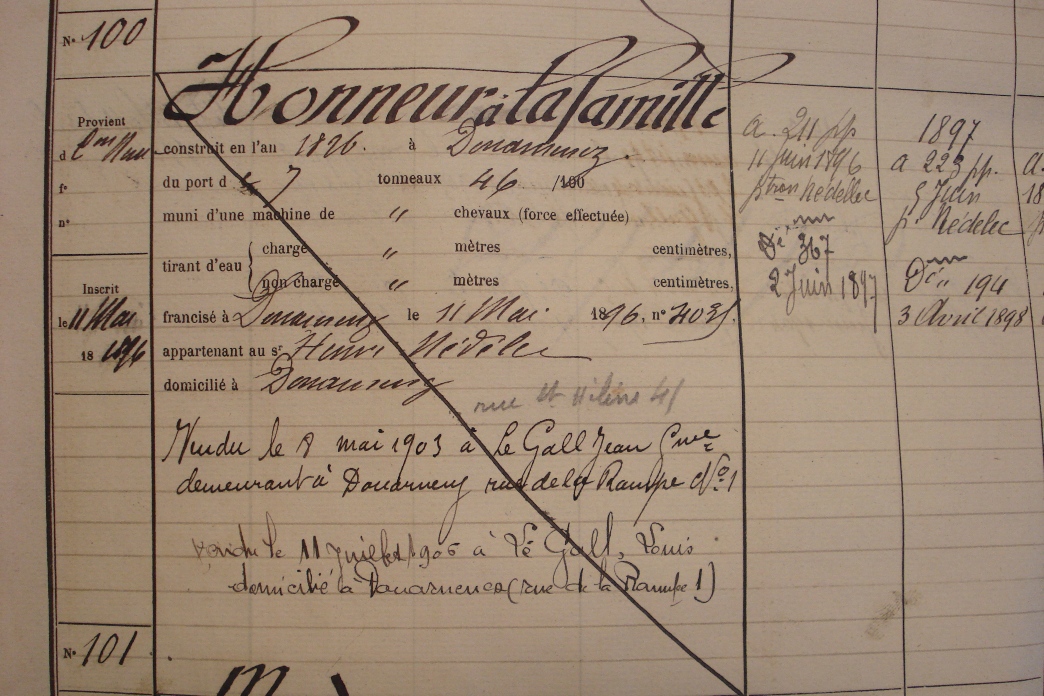 N° 100
Honneur à la famille
Provient
d
f°
n°
Inscrit
le 11 Mai
18 1896
construit en l'an 1896. à Douarnenez.
du port d 7 tonneaux 46 /100
muni d'une machine de " chevaux (force effectuée)
tirant d'eau { chargé " mètres centimètres,
non chargé " mètres centimètres,
francisé à Douarnenez le 11 Mai. 1896, n°
appartenant au sr Henri Nédélec
domicilié à Douarnenez
rue Ste Hélène 41
Vendu le 8 mai 1903 à Le Gall Jean
demeurant à Douarnenez rue de la Rampe No 1
Vendu le 11 Juillet 1906 à Le Gall, Louis
domicilié à Douarnenez (rue de la Rampe 1)
a. 211 pp
11 Juin 1896
ptron Nédellec
367
2 Juin 1897
1897
a 223 pp.
5 Juin
p. Nédelec
194
3 Avril 1898
a.
18
N° 101